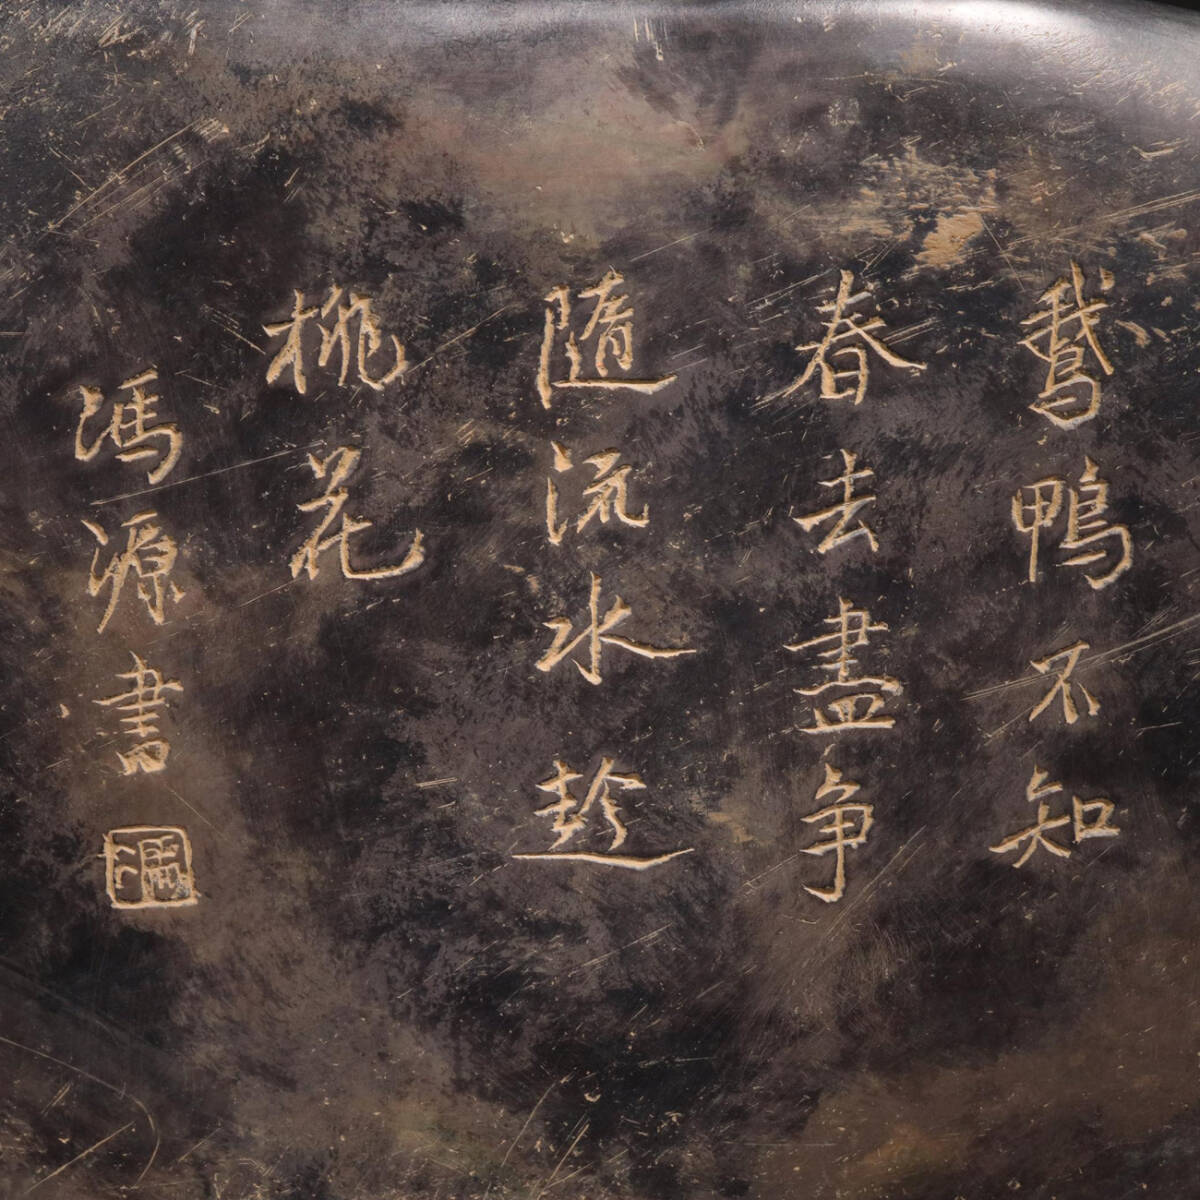 鵞鴨不知
春去盡争
隨流水趁
桃花
馮源書